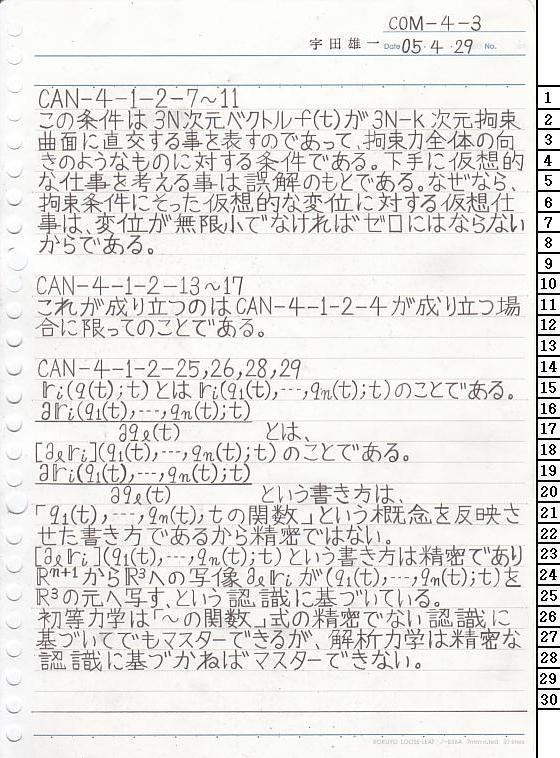 COM-4-3
宇田雄一 Date 05・4・29 No.
CAN-4-1-2-7～11
この条件は3N次元ベクトルf(t)が3N-k次元拘束
曲面に直交する事を表すのであって、拘束力全体の向
きのようなものに対する条件である。下手に仮想的
な仕事を考える事は誤解のもとである。なぜなら、
拘束条件にそった仮想的な変位に対する仮想仕
事は、変位が無限小でなければゼロにはならない
からである。
CAN-4-1-2-13～17
これが成り立つのはCAN-4-1-2-4が成り立つ場
合に限ってのことである。
CAN-4-1-2-25,26,28,29
𝕣i(q(t);t)とは𝕣i(q1(t),…,qn(t);t)のことである。
∂𝕣i(q1(t),…,qn(t);t)
∂qℓ(t) とは、
[∂ℓ𝕣i](q1(t),…,qn(t);t)のことである。
∂𝕣i(q1(t),…,qn(t);t)
∂qℓ(t) という書き方は、
「q1(t),…,qn(t),tの関数」という概念を反映さ
せた書き方であるから精密ではない。
[∂ℓ𝕣i](q1(t),…,qn(t);t)という書き方は精密であり
ℝn+1からℝ3への写像∂ℓ𝕣iが(q1(t),…,qn(t);t)を
ℝ3の元へ写す、という認識に基づいている。
初等力学は「～の関数」式の精密でない認識に
基づいてでもマスターできるが、解析力学は精密な
認識に基づかねばマスターできない。
KOKUYO LOOSE-LEAF ノ-836A 7mm ruled 31 lines
1
2
3
4
5
6
7
8
9
10
11
12
13
14
15
16
17
18
19
20
21
22
23
24
25
26
27
28
29
30